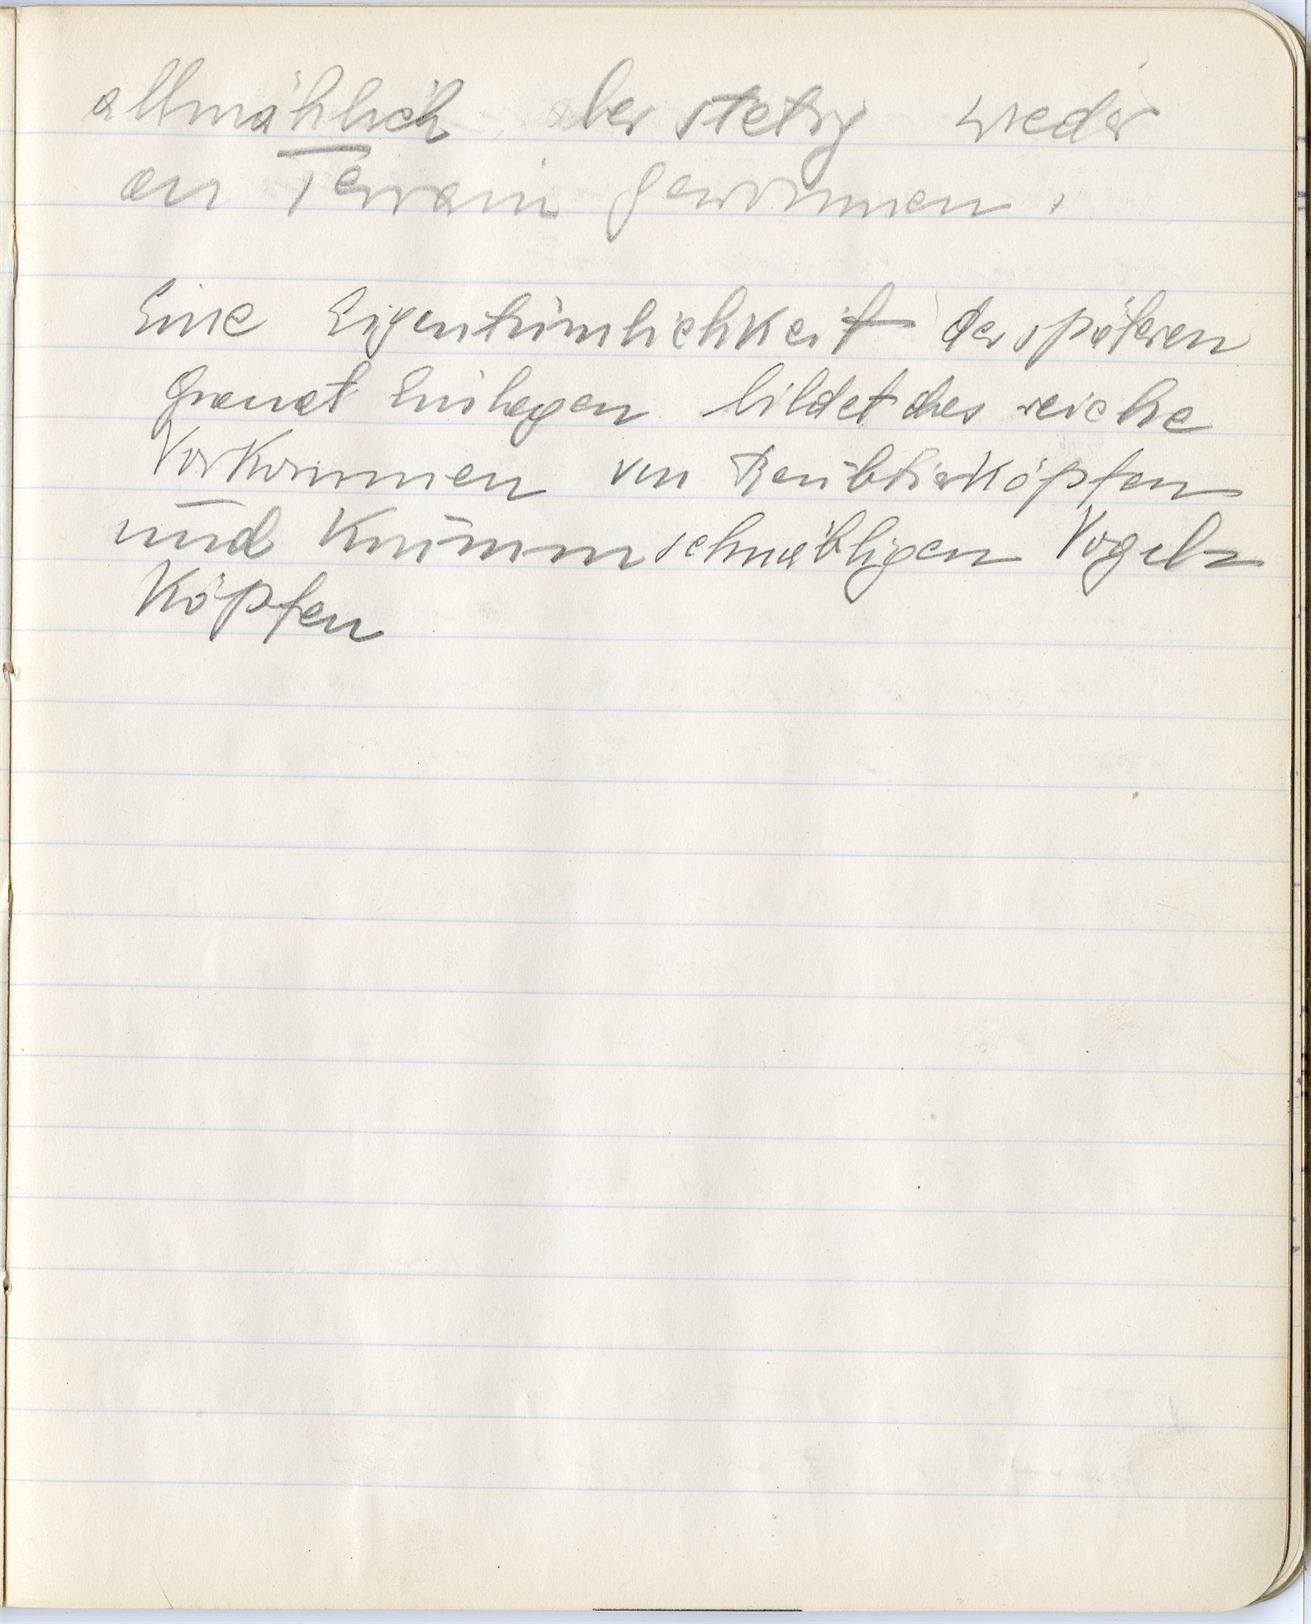 allmählich aber stetig wieder
an Terrain gewinnen.
Eine Eigentümlichkeit der späteren
Granat Einlagen bildet das reiche
Vorkommen von Raubtierköpfen
und Krummschnäbligen Vogel-
Köpfen